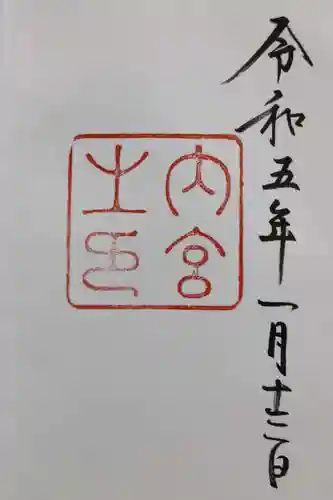 令和五年一月十三日
内宮
之印